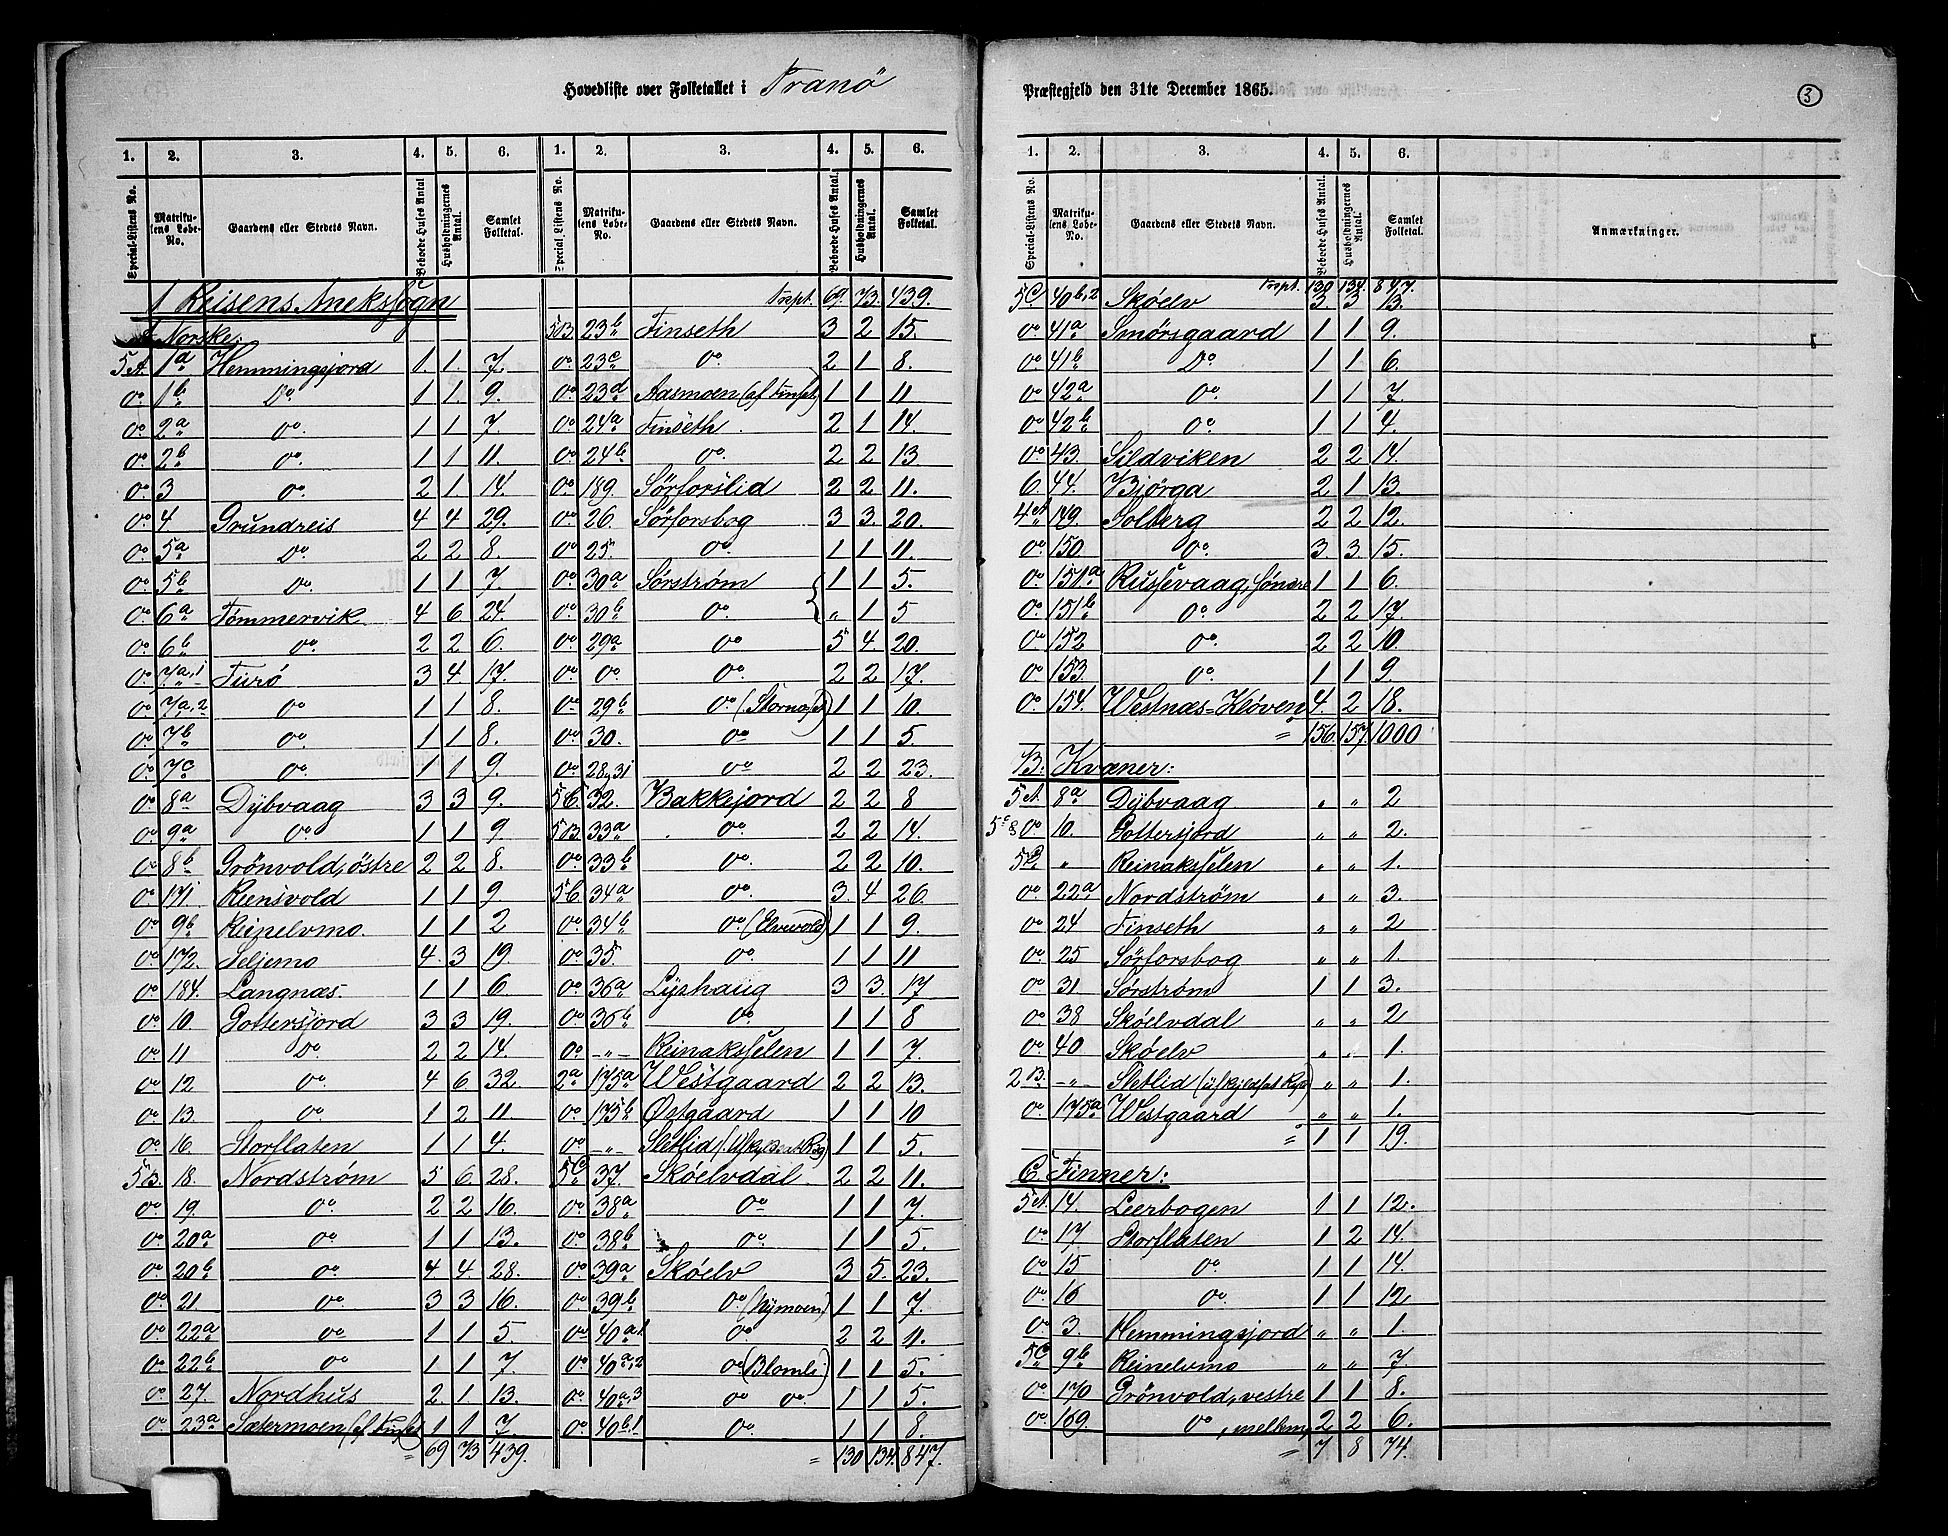 Hovedliste over Folketallet i Tranö
Præstegjeld den 31te December 1865.
3
1. 2. 3. 4. 5. 6. 1. 2. 3. 4. 5. 6.
Special-Listens No. Matrikulens Løbe-No. Gaardens eller Stedets Navn. Beboede Huses Antal Husholdningernes Antal. Samlet Folketal. Special-Listens No. Matrikulens Løbe-No. Gaardens eller Stedets Navn. Beboede Huses Antal. Husholdningernes Antal. Samlet Folketal.
1 Reisens Anekssogn
Norske:
5A. 1a Hemmingsjord 1. 1. 7.
Do. 1b Do. 1 1. 9.
Do. 2a Do. 1 1 7
Do. 2b Do. 1 1 11.
Do. 3 Do. 2 1 14.
Do. 4 Grundreis 4 4 29.
Do. 5a Do. 2 2 8.
Do. 5b Do. 1 1 7.
Do. 6a Tømmervik 4 6 24.
Do. 6b Do. 2 2 6.
Do. 7a,1 Furö 3 4 17.
Do. 7a,2 Do 1 1 8.
Do. 7b Do. 1 1 8.
Do. 7c Do. 1 1 9.
Do. 8a Dybvaag 3 3 9.
Do. 9a Do. 1 1 9.
Do. 8b Grönvold, östre 2 2 8.
Do. 171. Reensvold 1 1 9.
Do. 9b Reinelvmo. 1 1 2
Do. 172. Seljemo 4. 3 19.
Do. 184. Langnæs. 1 1 6
Do. 10. Gottersjord 3 3 19.
Do 11 Do. 2 2 14.
Do 12. Do. 4 6 32.
Do 13. Do. 1 2 11
Do. 16. Storflaten 1 1 4.
5B. 18. Nordström 5 6 28.
Do. 19. Do. 2 2 16.
Do. 20a Do. 1 1 13.
Do. 20b Do. 4. 4. 28.
Do. 21. Do. 3 3 16.
Do. 22a Do 1 1 5.
Do. 22b Do 1 1 7.
Do. 27. Nordhus 2. 1 13.
Do. 23a Sætermoen (af Finset) 1 1 7.
= 69 73 439.
Trspt. 69. 73. 439.
5B. 23b Finseth 3 2 15.
Do. 23c Do. 2 1 8.
Do. 23d Aasmoen (af Finset) 1 1 11
Do. 24a Finseth. 2 1 14.
Do. 24b Do. 2 2 13.
Do. 189. Sörforslid 2 2 11.
Do. 26. Sörforsbog 3 3. 20.
Do. 25. Do. 1 1 11.
Do. 30a Sörström 1 1 5.
Do. 30b Do. " 1 5
Do. 29a Do 5 4. 20.
Do. Do Do. 2 2 17.
Do. 29b Do (Stornæset) 1 1 10.
Do. 30. Do 1 1 5.
Do. 28,31 Do 2 2 23.
5C. 32. Bakkejord 2 2 8
5B. 33a Do. 2 2 14.
Do. 33b Do. 2 2 10.
5C. 34a Do. 3 4 26.
Do. 34b Do (Elvevold) 1 1 9.
Do. 35. Do. 1 1 11
Do. 36a Lyshaug 3 3. 17
Do. 36b Do. 1 1 8
Do. -"- Reinakslelen 1 1 7.
2a 175a Westgaard 2 2 13.
Do. 175b Østgaard 1 1 10
Do. -"- Sletlid 1 1 5.
5C 37. Skøelvdal 2 2 11.
Do. 38a Do 1 1 7.
Do. 38b Do. 1 1 5.
Do. 39a Skøelv 3 5. 23.
Do. 39b Do (Nymoen) 1 1 7.
Do. 40a1. Do. 2 2 11.
Do. 40a,2 Do (Blomli) 1 1 5.
Do. 40a,3 Do Do. 1 1 5.
Do. 40b,1 Do. 1 1 8.
= 130 134. 847.
1. 2. 3. 4. 5. 6.
Special-Listens No. Matrikulens Løbe-No. Gaardens eller Stedets Navn. Beboede Huses Antal. Husholdningernes Antal. Samlet Folketal. Anmærkninger.
Trspt. 130. 134. 847.
5C 40b,2 Skøelv 3 3 13.
Do. 41a Smörsgaard 1 1 9.
Do. 41b Do. 1 1 6.
Do. 42a Do. 1 1 7.
Do. 42b Do. 1 1 4.
Do. 43. Sildviken 2 2 14.
6. 44. Bjørga 2 1 13.
4A 149. Solberg 2 2 12.
Do. 150. Do. 3 3. 15.
Do. 151a Russevaag, søndre 1 1 6.
Do. 151b Do. 2 2 17.
Do. 152 Do. 2 2 10.
Do. 153. Do. 1 1 9.
Do. 154. Westnæs=Kløven 4. 2 18.
= 156. 157. 1000
B. Kvæner:
5A. 8a Dybvaag " " 2
Do. 10. Gottersjord " " 2.
5C " Reinakslelen " " 1.
Do. 22a Nordström " " 3.
Do. 24 Finseth " " 2
Do. 25 Sörforsbog " " 1.
Do. 31 Sörström 1 1 3.
Do. 38 Skøelvdal " " 2
Do. 40 Skøelv " " 1.
2B. -"- Sletlid " " 1.
Do. 175a Westgaard " " 1.
= 1 1 19.
C. Finner:
5A. 14. Leerbogen 1 1 12.
Do. 17 Storflaten 1 2 14.
Do. 15 Do. 1 1 14
Do. 16 Do. 1 1 12
Do. 3. Hemmingsjord " " 1.
5C. 9b Reinelvmo " " 7
Do. 170 Grönvold, vestre 1 1 8.
Do. 169. Do, mellem, 2 2 6.
= 7 8 74.